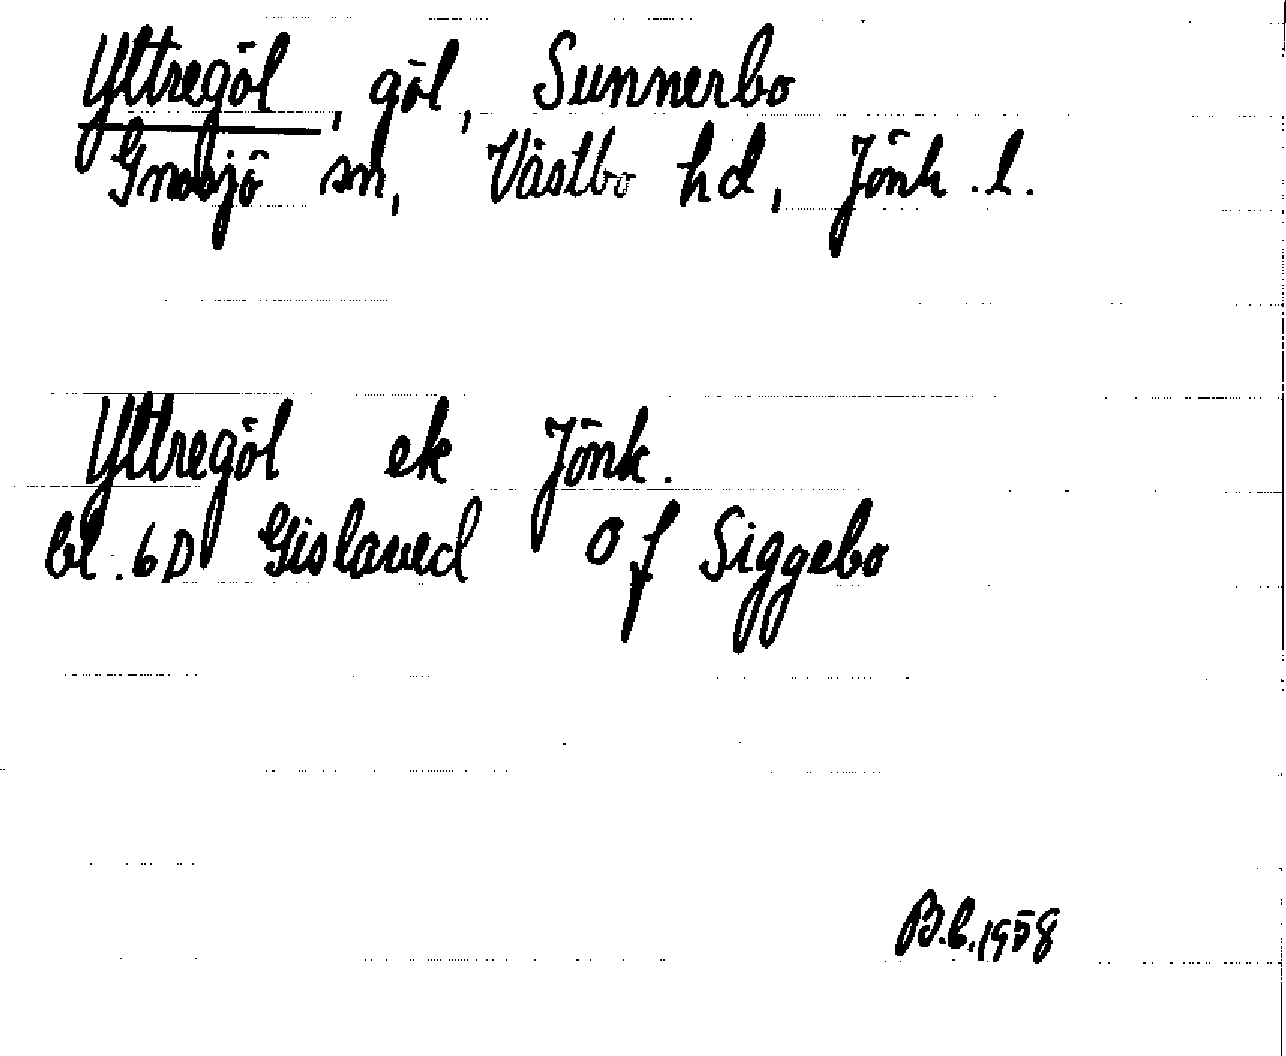 Yttregöl, göl, Sunnerbo
Gnosjö sn, Västbo hd, Jönk. l.
Yttregöl ek Jönk.
bl. 6D Gislaved Of Siggebo
B.b. 1958